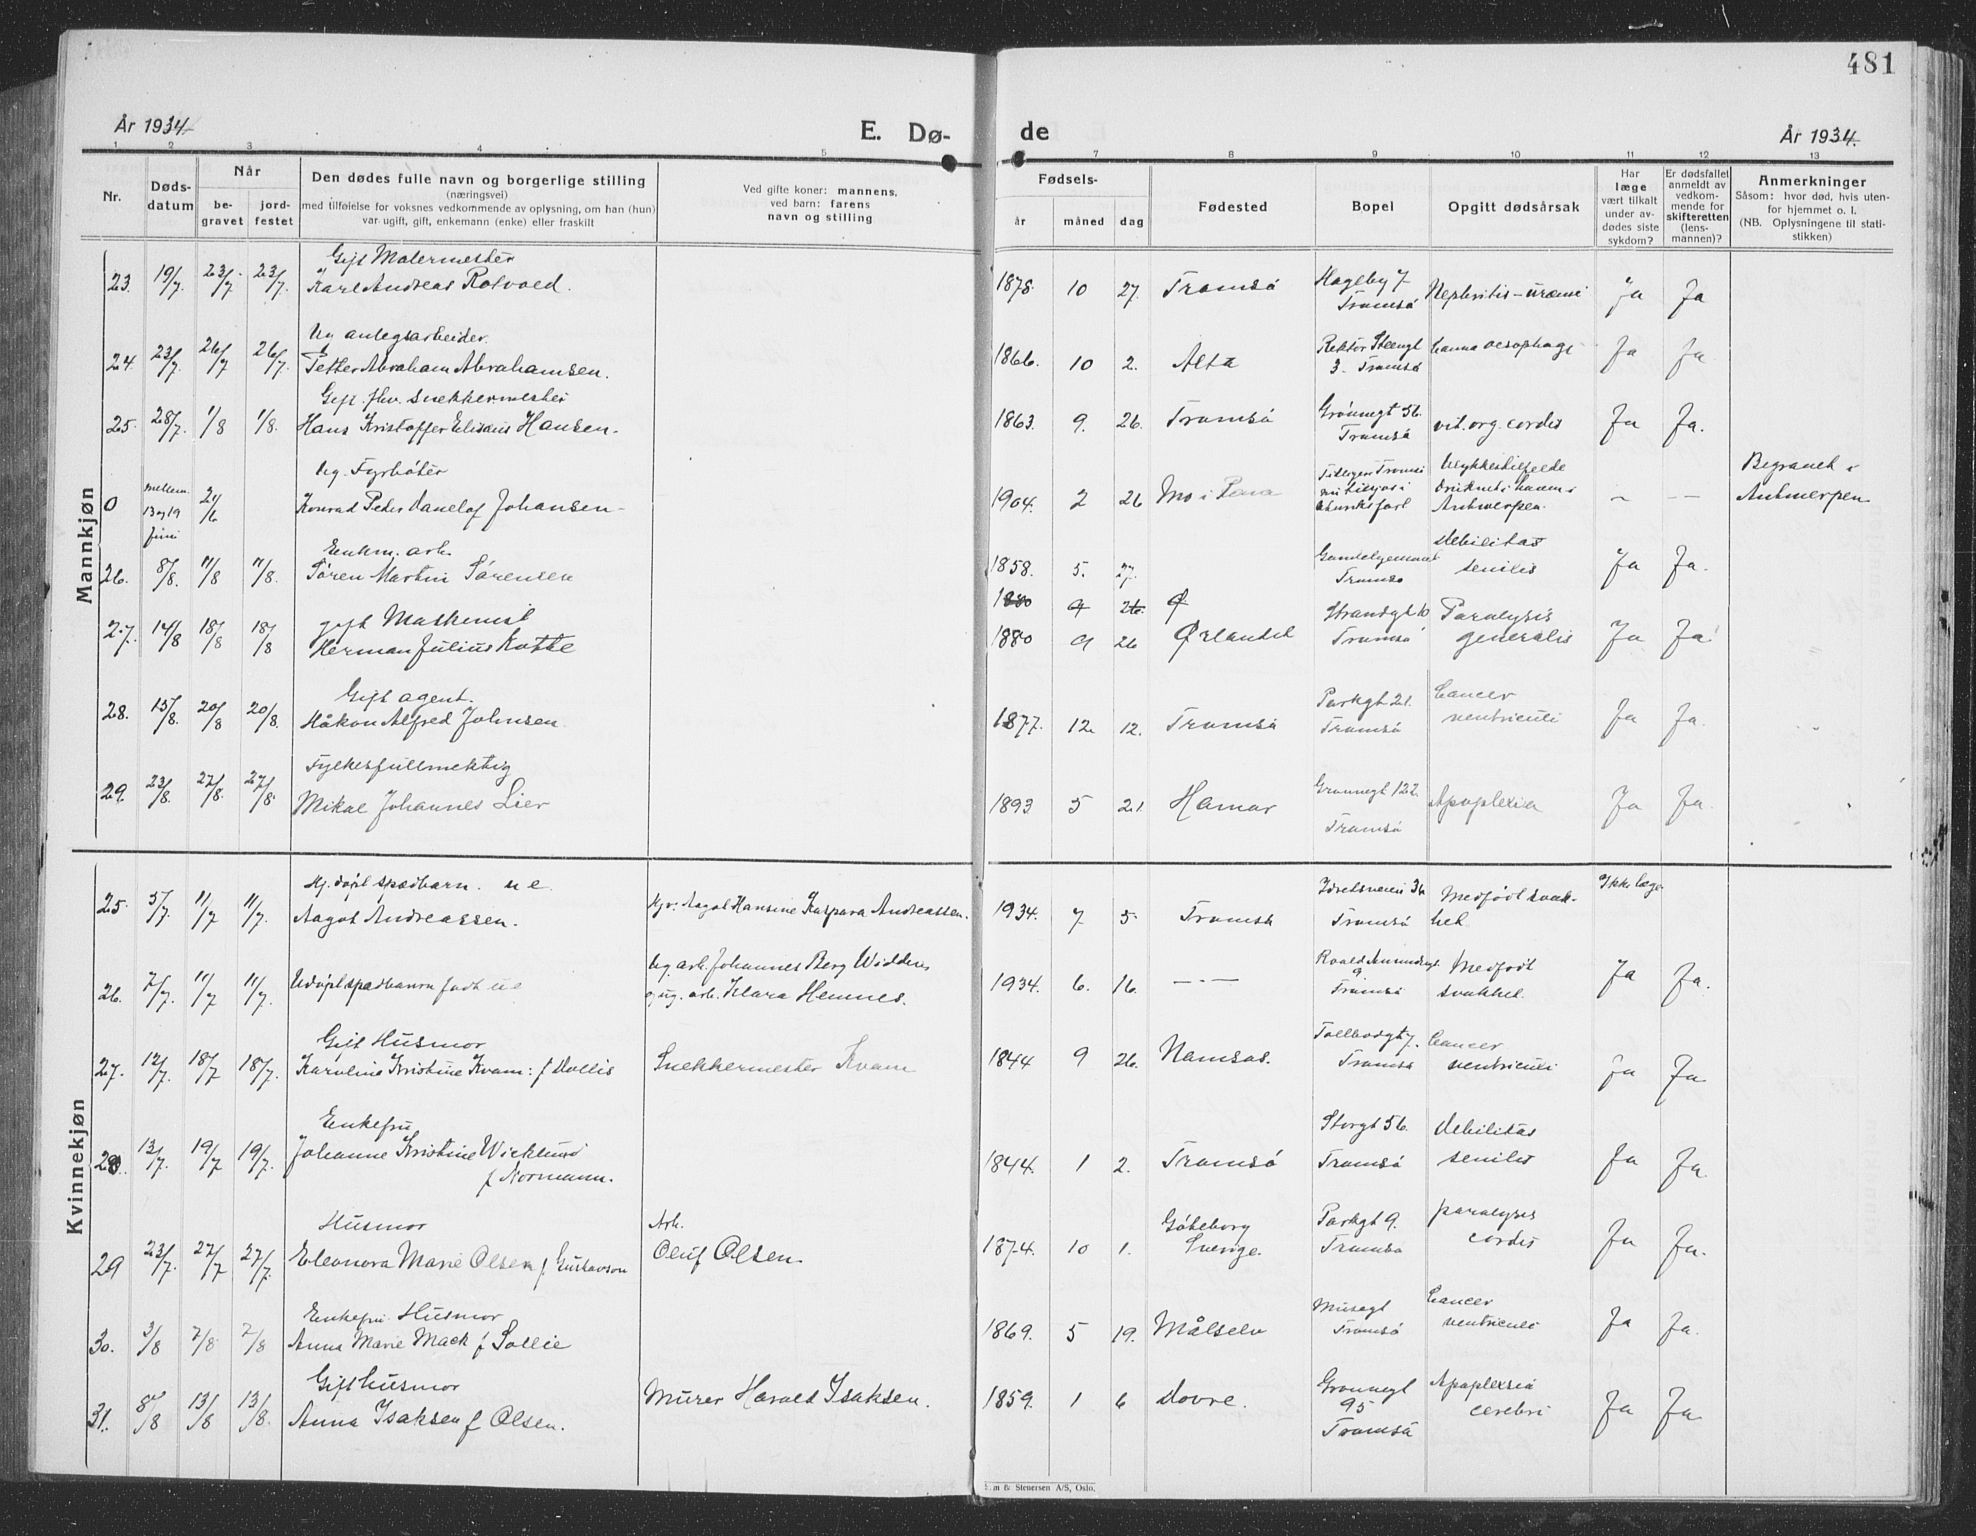 481
År 1934
E. Dø-
de
År 1934.
1 2 3 4 5
6 7 8 9 10 11 12 13
Nr.
Døds-
datum
Når
be-
gravet
jord-
festet
Den dødes fulle navn og borgerlige stilling
(næringsvei)
med tilføielse for voksnes vedkommende av oplysning, om han (hun)
var ugift, gift, enkemann (enke) eller fraskilt
Ved gifte koner: mannens,
ved barn: farens
navn og stilling
Fødsels-
år måned dag
Fødested
Bopel
Opgitt dødsårsak
Har
læge
vært tilkalt
under av-
dødes siste
sykdom?
Er dødsfallet
anmeldt av
vedkom-
mende for
skifteretten
(lens-
mannen)?
Anmerkninger
Såsom: hvor død, hvis uten-
for hjemmet o. l.
(NB. Oplysningene til stati-
stikken)
Mannkjøn
Gift Malermester
23. 19/7. 23/7. 23/7. Karl Andreas Rotvold. 1878. 10 27. Tromsö Hagleby 7 Tromsö Nephritis - uræmi Ja Ja
Ug anlegsarbeider.
24. 23/7. 26/7 26/7. Petter Abraham Abrahamsen. 1866. 10 2. Alta Rektor Steengt 3. Tromsö Ja Ja
Gift. fhv. snekkermester
25. 28/7. 1/8 1/8. Hans Kristoffer Hansen. 1863. 9. 26. Tromsö Grönnegt 56. Tromsö vit. org. cordis Ja Ja.
Ug. Fyrböter
0 mellem 13 og 19 juni 21/6 Konrad Peder Danelof Johansen 1904. 2 26 Mo i Rana Ulykkestilfelde Druknet i havn i Antwerpen. Begravet i Antwerpen
Enkm. arb.
26. 8/8. 11/8 11/8. Sören Martin Sörensen 1858. 5. 27. Tromsö Debilitas senilis Ja Ja.
1880 9 26. Ø
gift Maskinist
27. 14/8 18/8 18/8 Herman Julius Kotte 1880 9 26 Ørlandet Strandgt 10 Tromsö Paralysis generalis Ja Ja
Gift agent.
28. 15/8. 20/8 20/8. Håkon Alfred Johnsen. 1877. 12. 12. Tromsö Parkgt 21. Tromsö Cancer ventriculi Ja Ja.
Fylkesfullmektig
29. 23/8. 27/8. 27/8. Mikal Johannes Lier 1893 5 21. Hamar Grönnegt 122. Tromsö Apoplexia Ja Ja.
Kvinnekjøn
Hj. döpt spedbarn. u e.
25. 5/7. 11/7 11/7. Aagot Andreassen. Mor: Aagot Hansine Kaspara Andreassen. 1934. 7 5. Tromsö Idretsveien 36 Tromsö Medfödt svak- het Ikke læge
26. 7/7. 11/7 11/7. Udöpt spædbarn födt u.e. Ug. arb. Johannes Berg Widding o, ug. arb. Klara Hemnes. 1934. 6. 16. — " — Roald Amundsgt. 9. Tromsö Medfödt svakhet. Ja Ja.
Gift Husmor
27. 12/7. 18/7 18/7. Karoline Kristine Kvam: f Dollis Snekkermester Kvam 1844 9 26. Namsos. Tollbodgt 7. Tromsö Cancer ventriculi Ja Ja
Enkefru
28. 13/7. 19/7 19/7. Johanne Kristine Wicklund f Normann. 1844. 1 2. Tromsö Storgt 56. Tromsö Debilitas senilis Ja Ja.
Husmor
29 23/7. 27/7 27/7. Eleonora Marie Olsen f. Gustavson Arb. Oluf Olsen. 1874. 10 1. Göteborg Sverige. Parkgt 9. Tromsö paralysis cordis Ja Ja.
Enkefru Husmor
30. 3/8 7/8 7/8 Anna Marie Mack f Sollie 1869. 5 19. Målselv Musegt Tromsö Cancer ventriculi Ja Ja.
Gift husmor
31. 8/8 13/8 13/8. Anna Isaksen f Olsen. Murer Harald Isaksen. 1859. 1 6 Dovre. Grönnegt 95 Tromsö Apoplexia cerebri Ja Ja
& Stenersen A/S, Oslo.